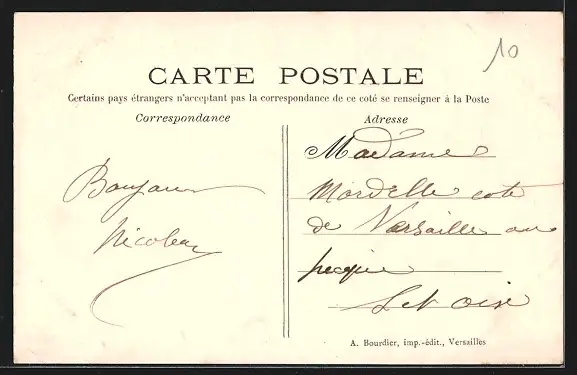 10
CARTE POSTALE
Certains pays étrangers n'acceptant pas la correspondance de ce coté se renseigner à la Poste
Correspondance
Adresse
Madame
Mordelle cote
de Versaille au
pecque
Set oise
Bonjour
Nicoleau
A. Bourdier, imp.-édit., Versailles